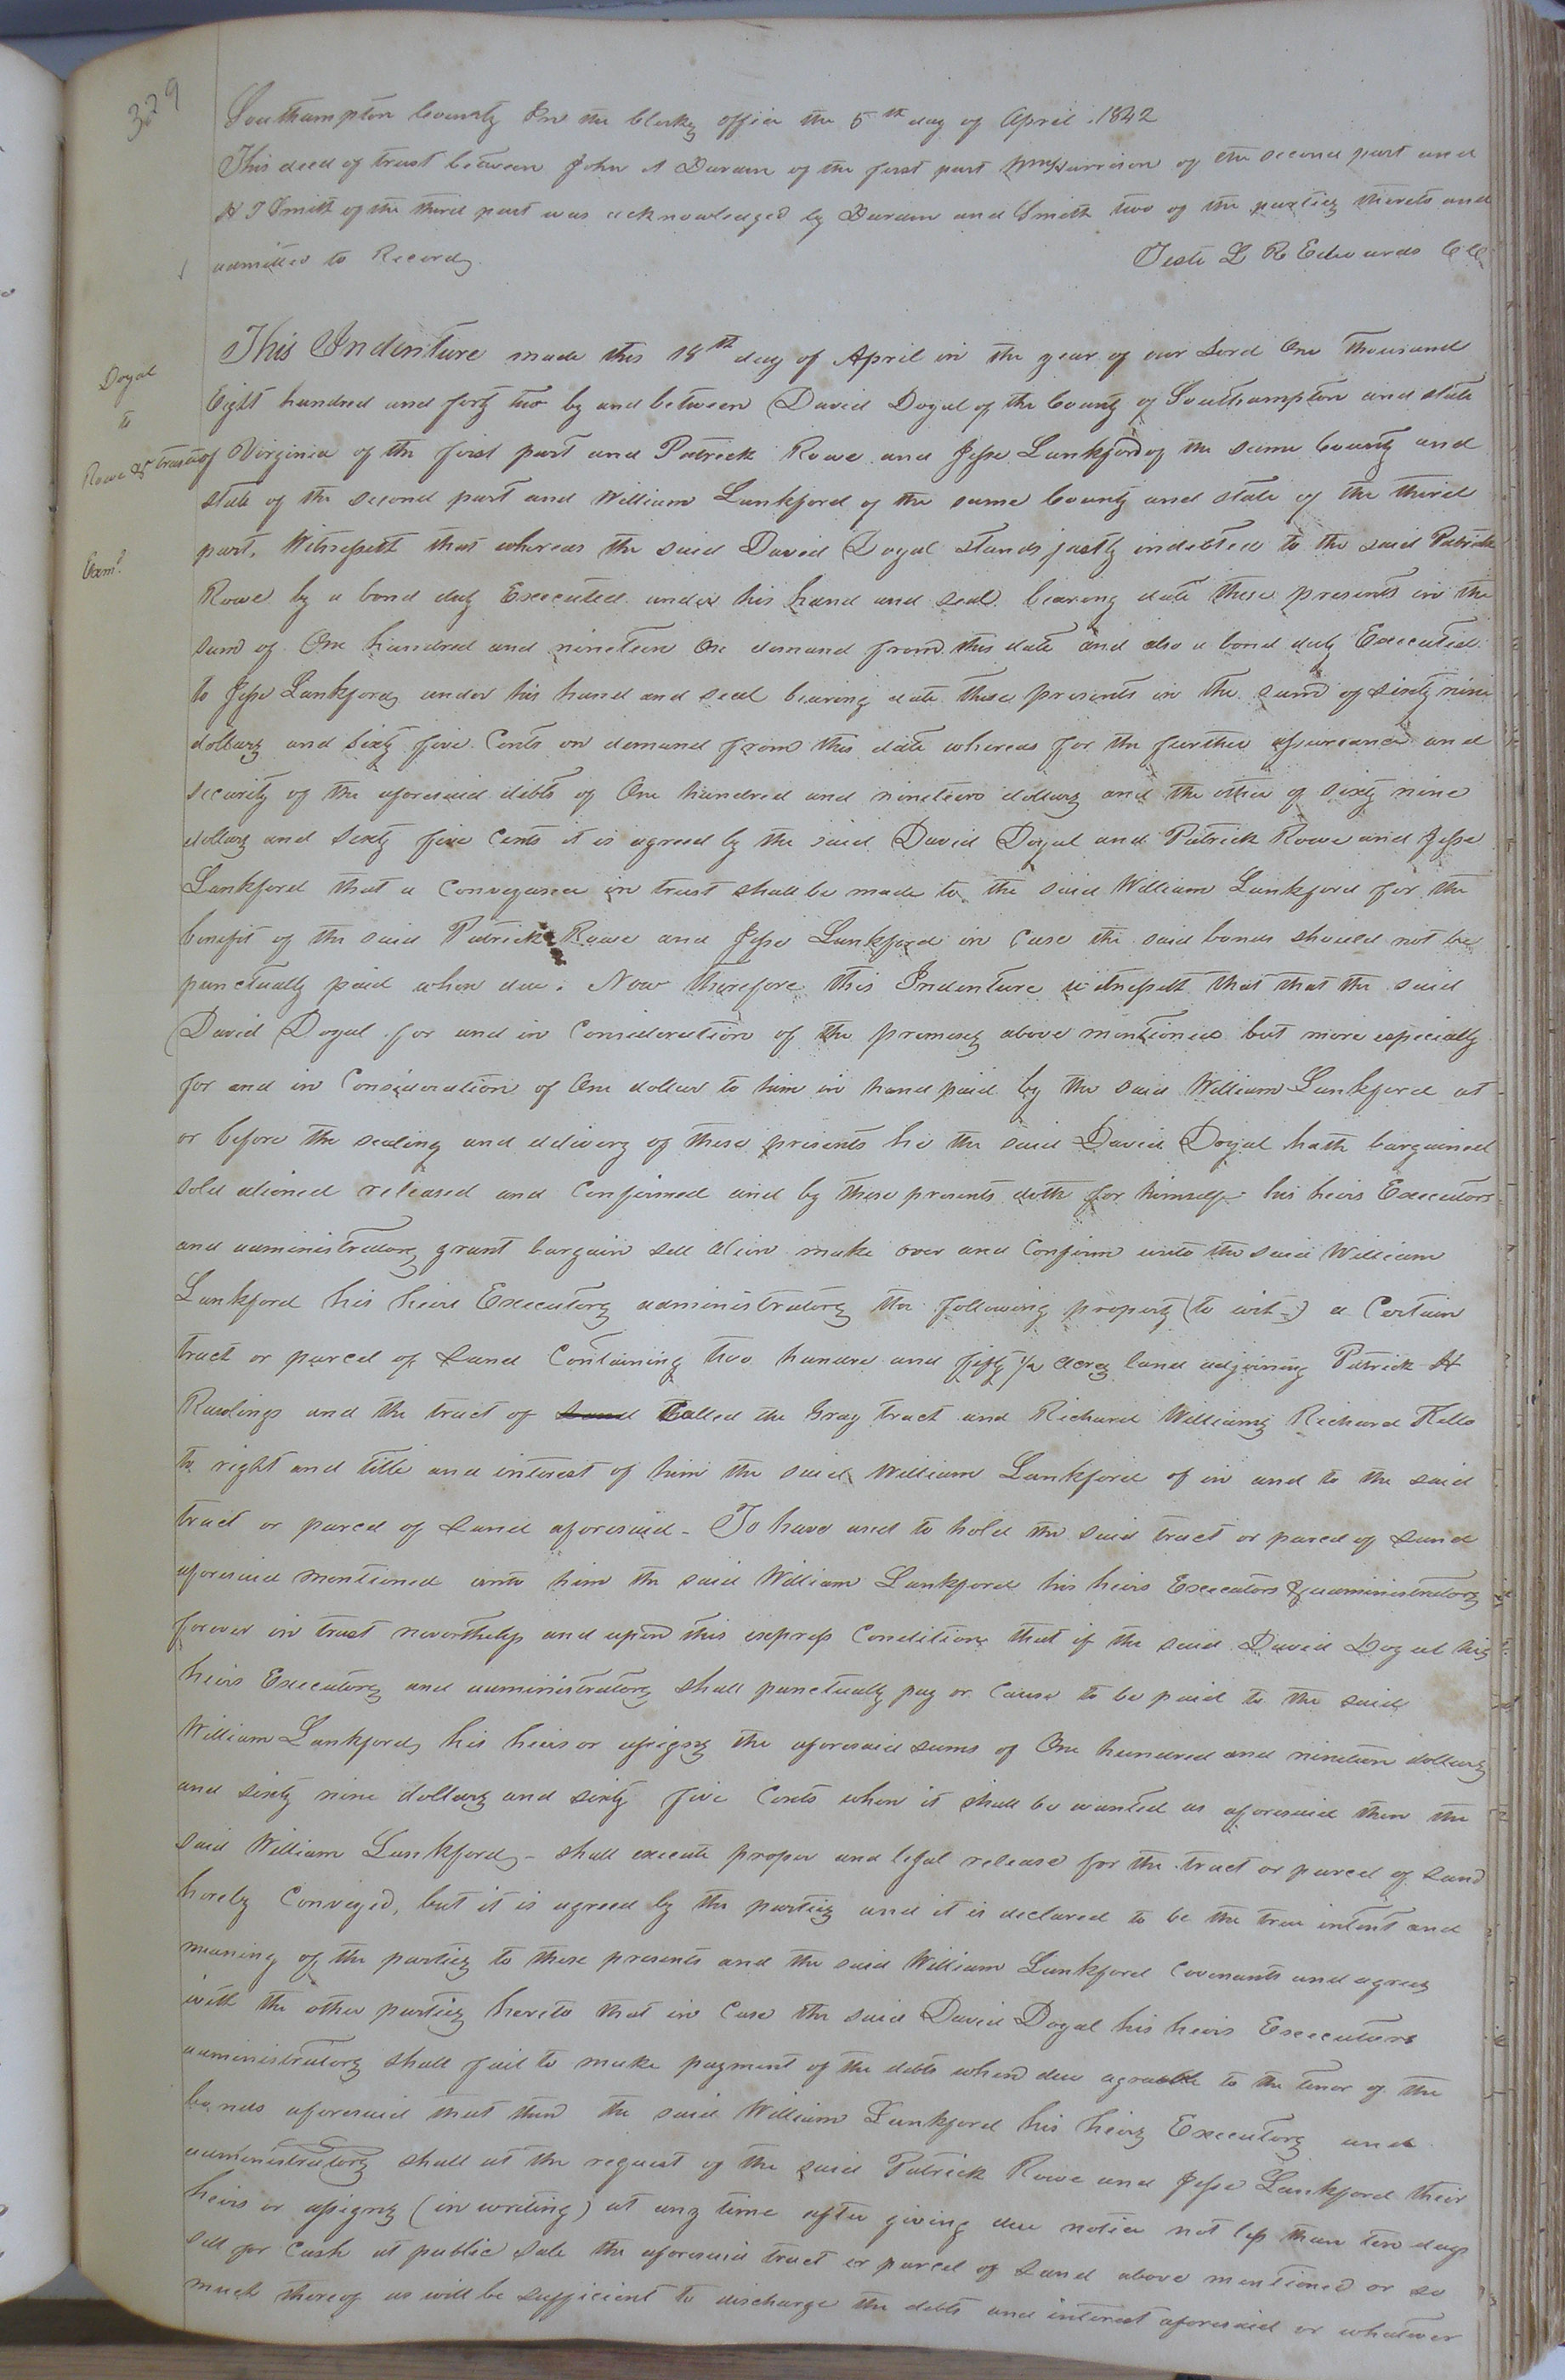 329
Southampton County In the Clerks office the 5th day of April 1842
This deed of trust between John A Darden of the first part Wm Harrison of the second part and
H T Smith of the third part was acknowledged by Darden and Smith two of the parties thereto and
admitted to Record.
Teste L R Edwards CC
This Indenture made this 18th day of April in the year of our Lord One thousand
Doyal
to
Rowe &c trustee
Eight hundred and forty two by and between David Doyal of the County of Southampton and state
of Virginia of the first part and Patrick Rowe and Jesse Lankford of the same County and
state of the second part and William Lankford of the same County and state of the third
Exmd
part, Witnesseth that whereas the said David Doyal stands justly indebted to the said Patrick
Rowe by a bond duly Executed under his hand and seal bearing date these presents in the
sum of One hundred and nineteen on demand from this date and also a bond duly Executed
to Jesse Lankford under his hand and seal bearing date these presents in the sum of sixty nine
dollars and sixty five Cents on demand from this date whereas for the further assurance and
security of the aforesaid debts of One hundred and nineteen dollars and the other of sixty nine
dollars and sixty five Cents it is agreed by the said David Doyal and Patrick Rowe and Jesse
Lankford that a Conveyance in trust shall be made to the said William Lankford for the
benefit of the said Patrick Rowe and Jesse Lankford in Case the said bonds should not be
punctually paid when due. Now therefore this Indenture witnesseth that that the said
David Doyal for and in Consideration of the premises above mentioned but more especially
for and in Consideration of One dollar to him in hand paid by the said William Lankford at
or before the sealing and delivery of these presents he the said David Doyal hath bargained
sold aliened released and Confirmed and by these presents doth for himself his heirs Executors
and administrators grant bargain sell alien make over and Confirm unto the said William
Lankford his heirs Executors administrators the following property (to wit-) a Certain
tract or parcel of Land Containing two hundred and fifty 1/2 acres land adjoining Patrick H
Rawlings and the tract of Land Called the Gray tract and Richard Williams Richard Kello
the right and title and interest of him the said William Lankford of in and to the said
tract or parcel of Land aforesaid - To have and to hold the said tract or parcel of Land
aforesaid mentioned unto him the said William Lankford his heirs Executors & administrators
forever in trust nevertheless and upon this express Condition that if the said David Doyal his
heirs Executors and administrators shall punctually pay or Cause to be paid to the said
William Lankford his heirs or assigns the aforesaid sums of One hundred and nineteen dollars
and sixty nine dollars and sixty five Cents when it shall be wanted as aforesaid then the
said William Lankford - shall execute proper and legal release for the tract or parcel of Land
hereby Conveyed, but it is agreed by the parties and it is declared to be the true intent and
meaning of the parties to these presents and the said William Lankford Covenants and agrees
with the other parties hereto that in Case the said David Doyal his heirs Executors
administrators shall fail to make payment of the debts when due agreeable to the tenor of the
bonds aforesaid that then the said William Lankford his heirs Executors and
administrators shall at the request of the said Patrick Rowe and Jesse Lankford their
heirs or assigns (in writing) at any time after giving due notice not less than ten days
sell for Cash at public sale the aforesaid tract or parcel of Land above mentioned or so
much thereof as will be sufficient to discharge the debts and interest aforesaid or whatever